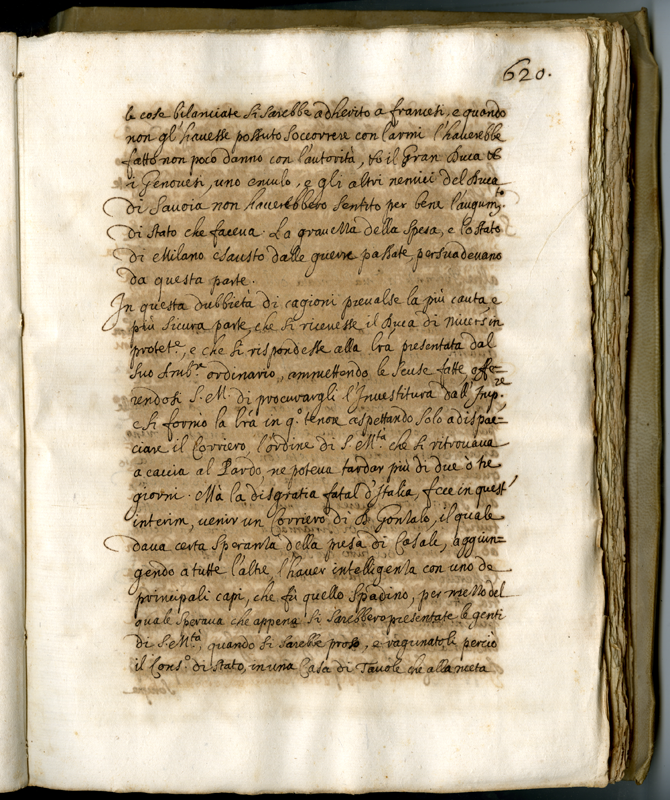 620.
le cose bilanciate si sarebbe adherito a francesi, e quando
non gl'hauesse possuto soccorrere con l'armi l'hauerebbe
fatto non poco danno con l'autorità, et il Gran Duca et
i Genouesi, uno emulo, e gli altri nemici del Duca
di Sauoia non hauerebbero sentito per bene l'augum.to
di stato che faceua. La grauezza della spesa, e lo stato
di Milano esausto dalle guerre passate, persuadeuano
da questa parte.
In questa dubbietà di cagioni preualse la più cauta e
più sicura parte, che si riceuesse il Duca di Niuers in
protet.e, e che si rispondesse alla lra presentata dal
suo Amb.r ordinario, ammettendo le scuse fatte, offe=
rendosi S. M. di procurargli l'Inuestitura dall'Imp.re,
e si formò la lra in q.o tenore aspettando solo a dispac=
ciare il Corriero l'ordine di S. M.tà che si ritrouaua
a caccia al Pardo ne poteua tardar più di due ò tre
giorni. Mà la disgratia fatal d'Italia, fece in quest'
interim, uenir un Corriero di D. Gonzalo, il quale
daua certa speranza della presa di Casale, aggiun=
gendo a tutte l'altre, l'hauer intelligenza con uno de
principali capi, che fù quello Spadino, per mezzo del
quale speraua che appena si sarebbero presentate le genti
di S. M.tà, quando si sarebbe preso, e ragunatosi perciò
il Cons.o di stato, in una Casa di Tauole che alla meta